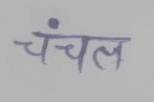 चंचल